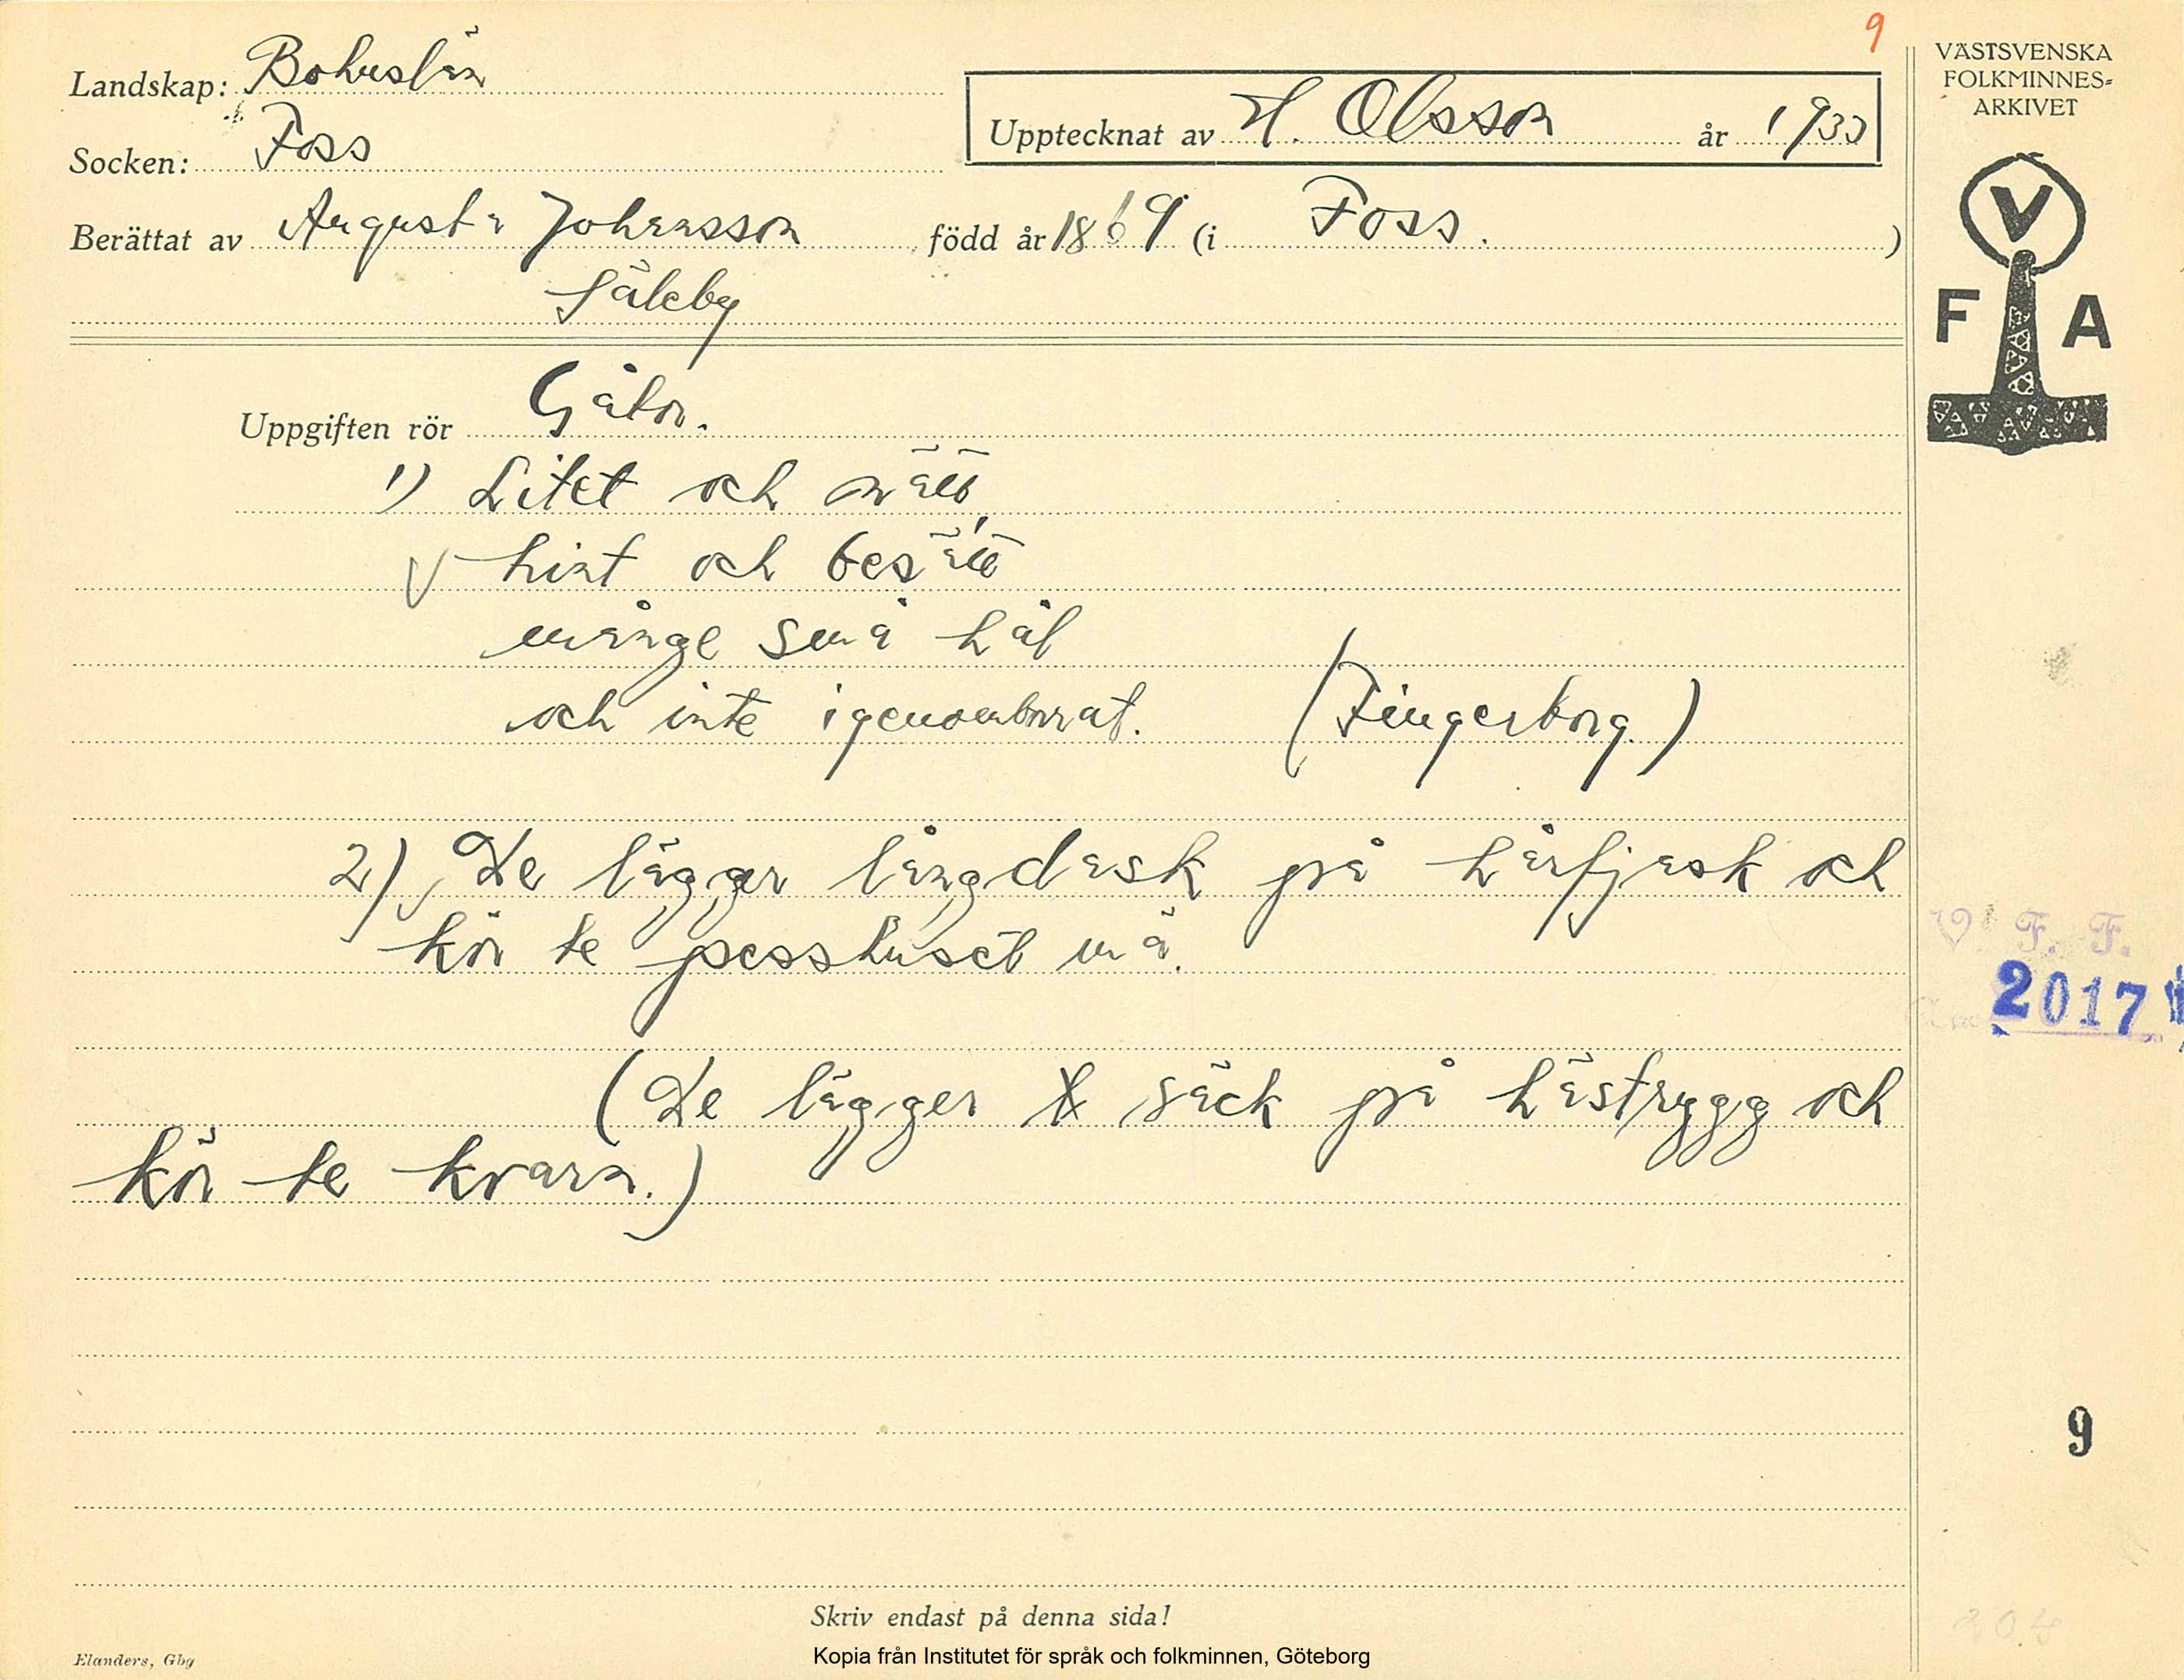 9
VÄSTSVENSKA
FOLKMINNES-
ARKIVET
Landskap: Bohuslän
Upptecknat av H. Olsson år 1933
Socken: Foss
Berättat av August Johansson född år 1869 (i Foss.)
Säleby
V
F A
Uppgiften rör Gåtor.
1) Litet och nätt,
V hint och besätt
många små hål
och inte igenomborrat. (Fingerborg.)
2) De lägger långdask på hårfjask och
kör te pesshuset må.
V. F. F.
2017
(De lägger säck på hästrygg och
kör te kvarn.)
9
Skriv endast på denna sida!
Elanders, Gbg
Kopia från Institutet för språk och folkminnen, Göteborg